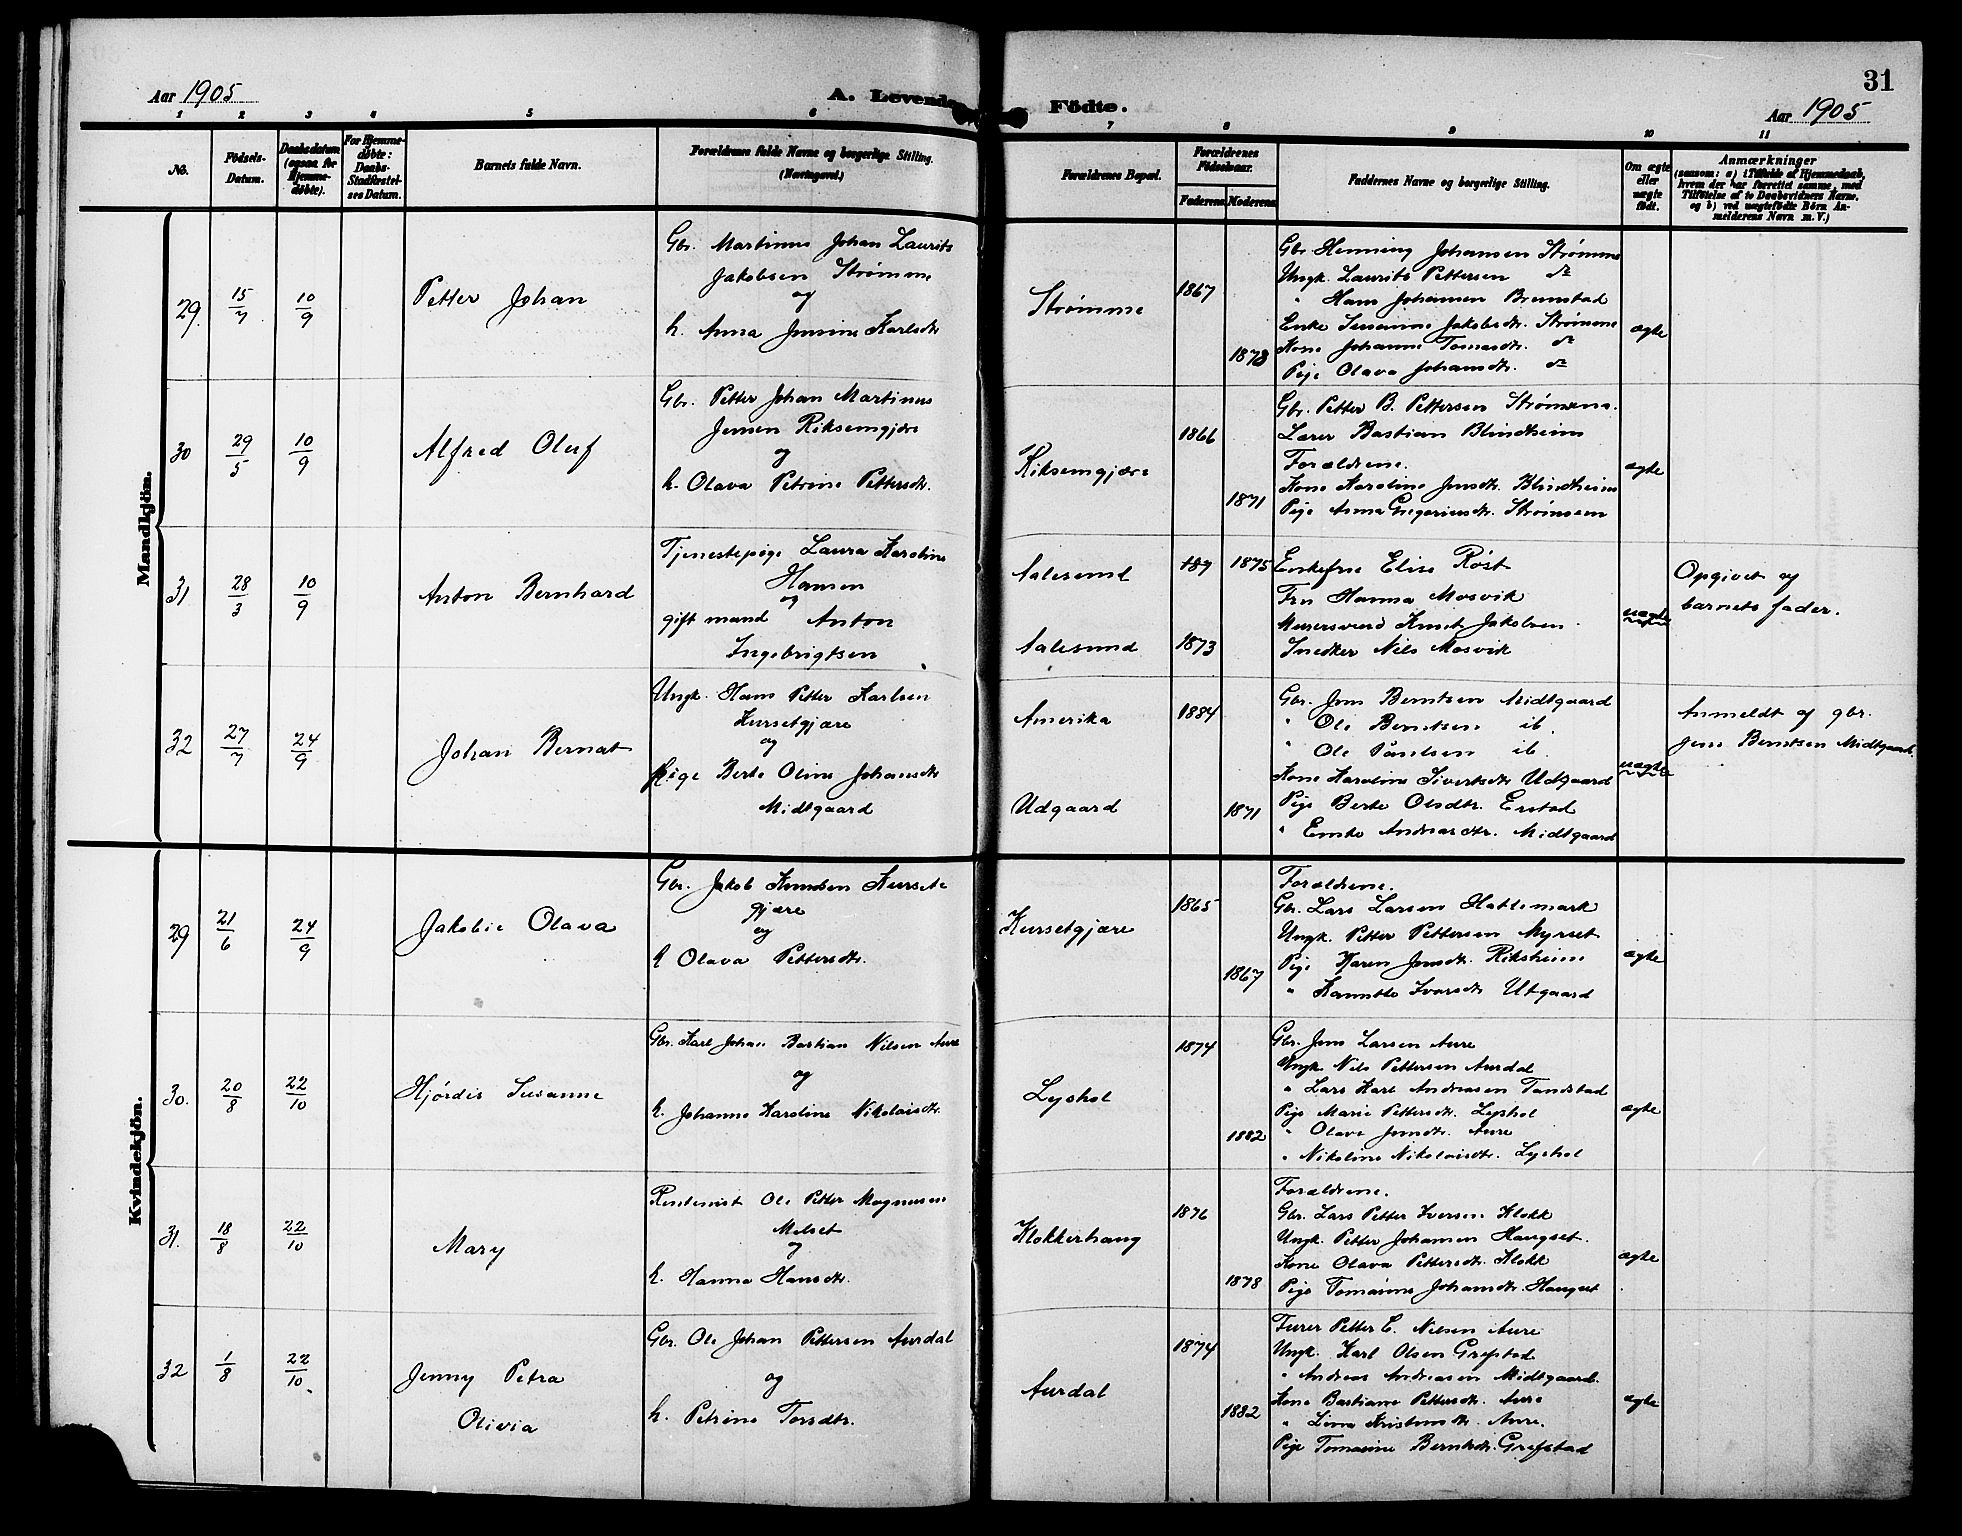 Aar 1905
A. Levende Födte.
31
Aar 1905
1 2 3 4 5 6 7 8 9 10 11
No.
Födsels-Datum.
Daabsdatum (ogsaa for Hjemme-döbte).
For Hjemme-döbte: Daabs-Stadfæstel-ses Datum.
Barnets fulde Navn.
Forældrenes fulde Navne og borgerlige Stilling. (Næringsvei.)
Forældrenes Bopæl.
Forældrenes Födselsaar.
Faderens Moderens
Faddernes Navne og borgerlige Stilling.
Om ægte eller uægte födt.
Anmærkninger
(saasom: a) i Tilfælde af Hjemmedaab,
hvem der har forrettet samme, med
Tilföielse af to Daabsvidners Navne,
og b) ved uægtefödte Börn An-
melderens Navn m. V.)
Mandkjön.
29. 15/7 10/9
Petter Johan
Gbr. Martinus Johan Laurits
Jakobsen Strømme
og
h. Anna Jensine Karlsdtr
Strømme
1867
1878
Gbr Henning Johansen Strømme
Ungk. Laurits Pettersen do
" Hans Johansen Brunstad
Enke Susanne Jakobsdtr. Strømme
Kone Johanne Tomasdtr. do
Pige Olava Johansdtr. do
ægte
30 29/5 10/9
Alfred Oluf
Gbr. Petter Johan Martinus
Jensen Riksemgjære
og
h. Olava Petrine Pettersdtr.
Riksemgjære
1866
1871
Gbr. Petter B. Pettersen Strømme.
Lærer Bastian Blindheim
Forældrene.
Kone Karoline Jensdtr. Blindheim
Pige Anna Gregoriusdtr. Strømsem
ægte
31 28/3 10/9
Anton Bernhard
Tjenestepige Laura Karoline
Hansen
og
gift mand Anton
Ingebrigtsen
Aalesund
Aalesund
187 1875
1873
Enkefrue Elise Røst
Fru Hanna Mosvik
Murersvend Knut Jakobsen.
Snedker Nils Mosvik
uægte
Opgivet af
barnets fader.
32 27/7 24/9
Johan Bernat
Ungk. Hans Petter Karlsen
Kursetgjære
og
Pige Berte Oline Johansdtr
Midtgaard
Amerika
Udgaard
1884
1871
Gbr. Jens Berntsen Midtgaard
" Ole Berntsen ib.
" Ole Paulsen ib.
Kone Karoline Sivertsdtr Udgaard
Pige Berte Olsdtr. Erstad
" Emte Andreasdtr. Midtgaard
uægte
Anmeldt af gbr.
Jens Berntsen Midtgaard.
Kvindekjön.
29 21/6 24/9
Jakobie Olava
Gbr. Jakob Knudsen Kurset-
gjære
og
h Olava Pettersdtr.
Kursetgjære
1865
1867
Forældrene.
Gbr. Lars Larsen Hattemark
Ungk. Petter Pettersen Myrset
Pige Karen Jensdtr. Riksheim
" Hansitte Ivarsdtr Utgaard
ægte
30. 20/8 22/10
Hjørdis Susanne
Gbr. Karl Johan Bastian Nilsen Aure
og
h. Johanne Karoline Nikolaisdtr.
Lyshol
1874
1882
Gbr. Jens Larsen Aure
Ungk Nils Pettersen Aurdal
" Lars Karl Andreasen Tandstad
Pige Marie Pettersdtr. Lyshol
" Olava Jensdtr. Aure
" Nikoline Nikolaisdtr. Lyshol
ægte
31. 18/8 22/10
Mary
Rentenist Ole Petter Magnusen
Melset
og
h. Hanna Hansdtr.
Klokkerhaug
1876
1878
Forældrene.
Gbr. Lars Petter Iversen Klokk
Ungk. Petter Johansen Haugset.
Kone Olava Pettersdtr. Klokk
Pige Tomasine Johansdtr. Haugset
ægte
32 1/8 22/10
Jenny Petra
Olivia
Gbr. Ole Johan Pettersen Aurdal
og
h. Petrine Torsdtr.
Aurdal
1874
1882
Furer Petter E. Nilsen Aure
Ungk. Karl Olsen Grefstad
" Andreas Andreasen Midtgaard.
Kone Bastiane Pettersdtr. Aure
" Lina Kristensdtr. Aure.
Pige Tomasine Berntsdtr. Grefstad
ægte